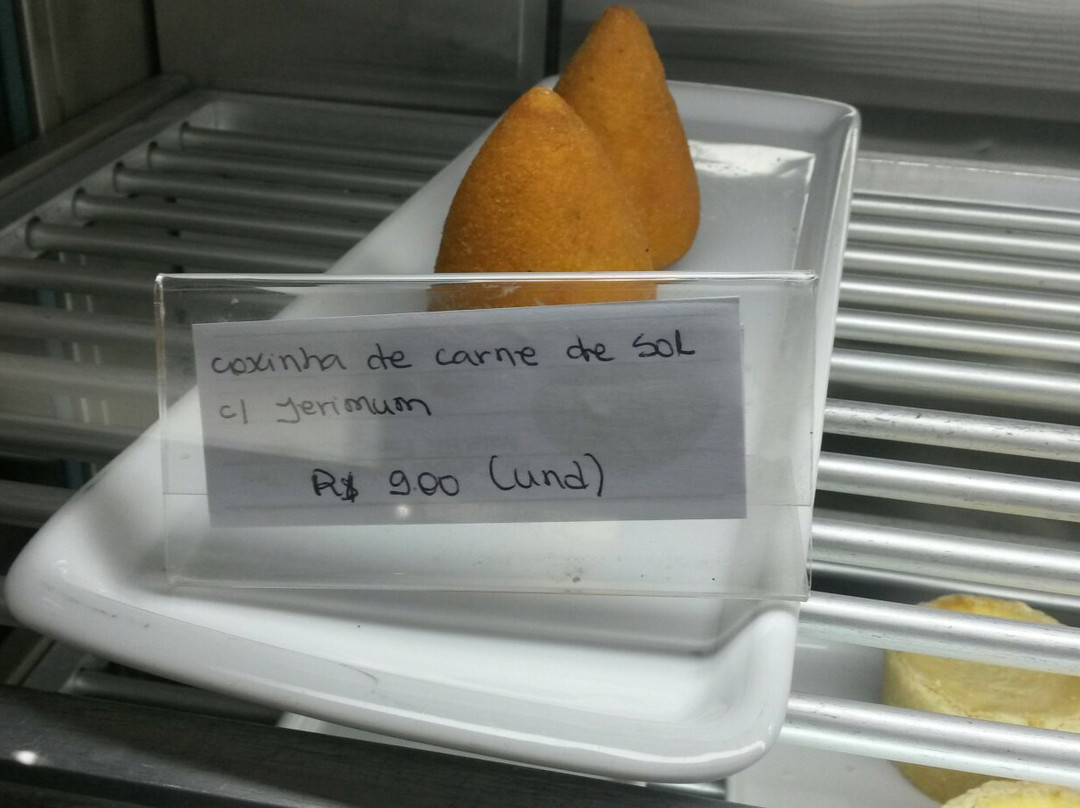 coxinha de carne de SOL
c/ jerimum
R$ 9.00 (und)